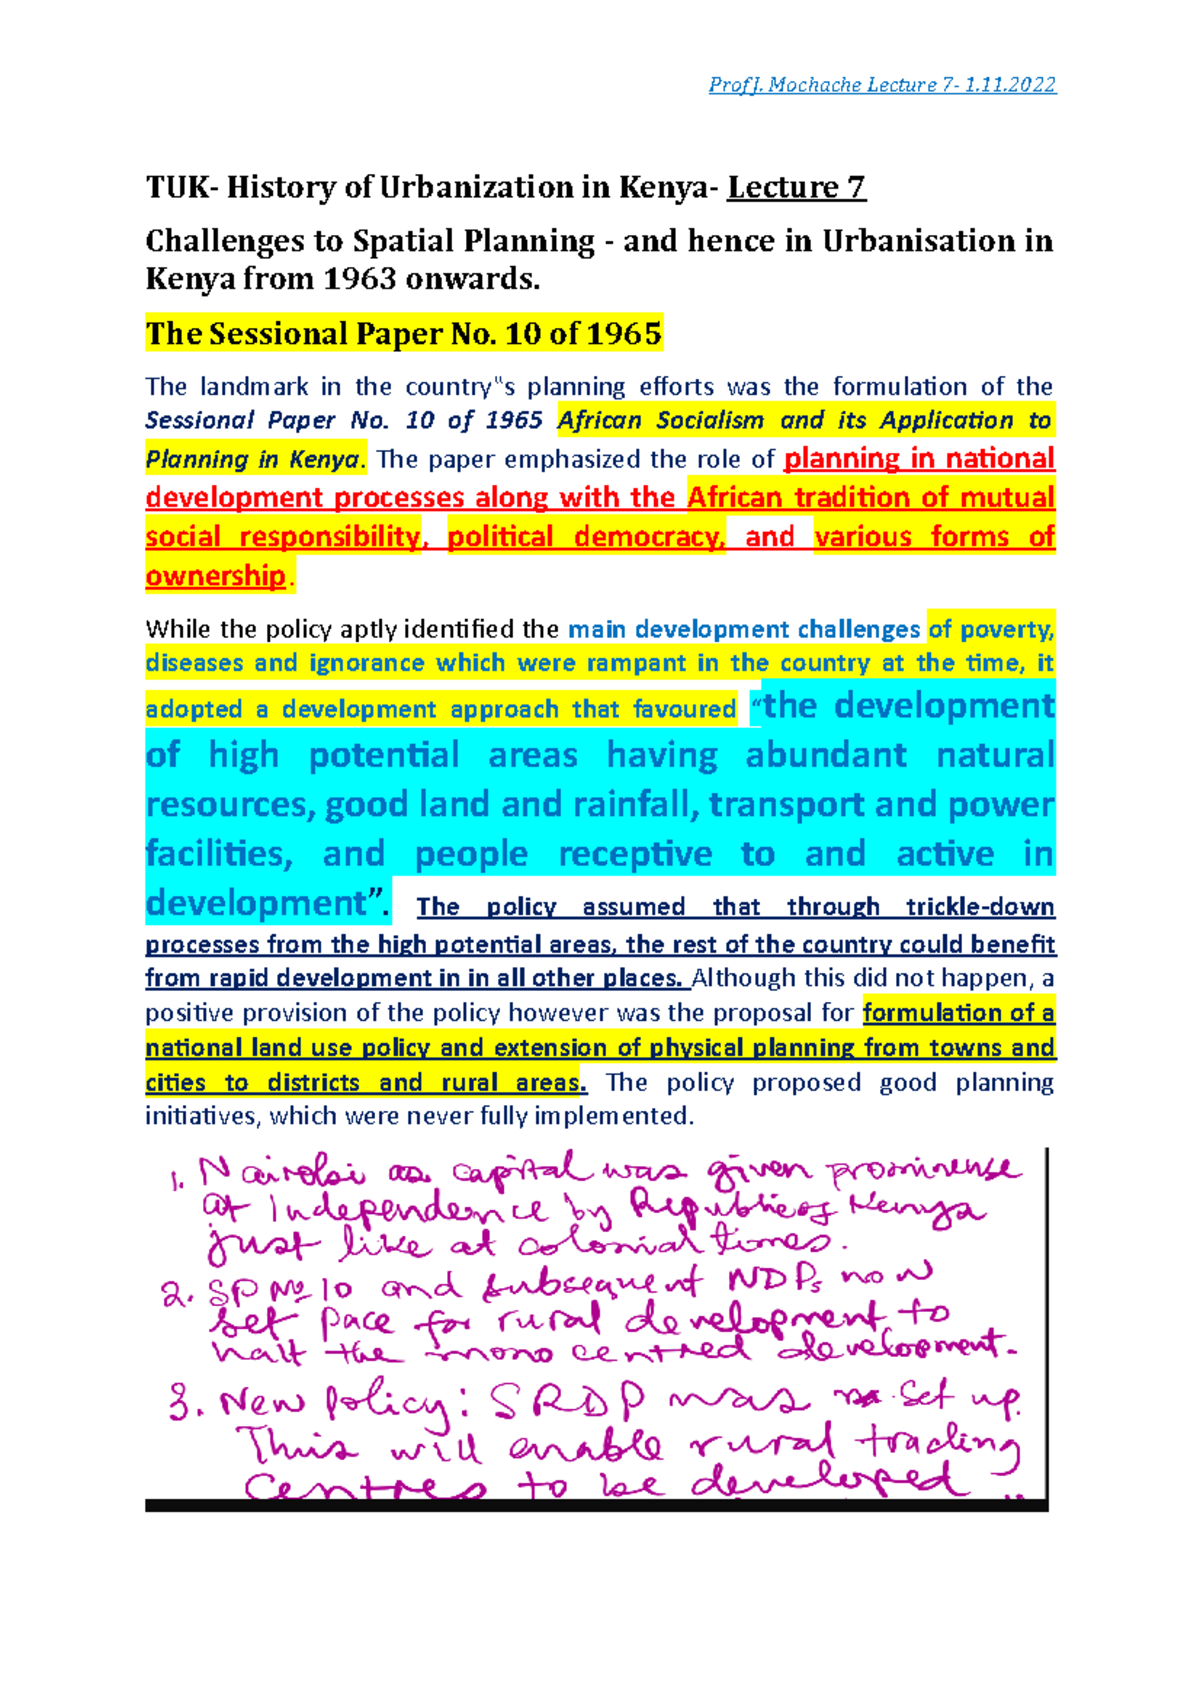 Prof J. Mochache Lecture 7- 1.11.2022
TUK- History of Urbanization in Kenya- Lecture 7
Challenges to Spatial Planning - and hence in Urbanisation in
Kenya from 1963 onwards.
The Sessional Paper No. 10 of 1965
The landmark in the country‟s planning efforts was the formulation of the
Sessional Paper No. 10 of 1965 African Socialism and its Application to
Planning in Kenya. The paper emphasized the role of planning in national
development processes along with the African tradition of mutual
social responsibility, political democracy, and various forms of
ownership.
While the policy aptly identified the main development challenges of poverty,
diseases and ignorance which were rampant in the country at the time, it
adopted a development approach that favoured “the development
of high potential areas having abundant natural
resources, good land and rainfall, transport and power
facilities, and people receptive to and active in
development”. The policy assumed that through trickle-down
processes from the high potential areas, the rest of the country could benefit
from rapid development in in all other places. Although this did not happen, a
positive provision of the policy however was the proposal for formulation of a
national land use policy and extension of physical planning from towns and
cities to districts and rural areas. The policy proposed good planning
initiatives, which were never fully implemented.
1. Nairobi as capital was given prominense
at Independence by Republic of Kenya
just like at colonial times.
2. SP No 10 and subsequent NDPs now
set pace for rural development to
halt the mono centred development.
3. New policy: SRDP was set up.
This will enable rural trading
Centres to be developed